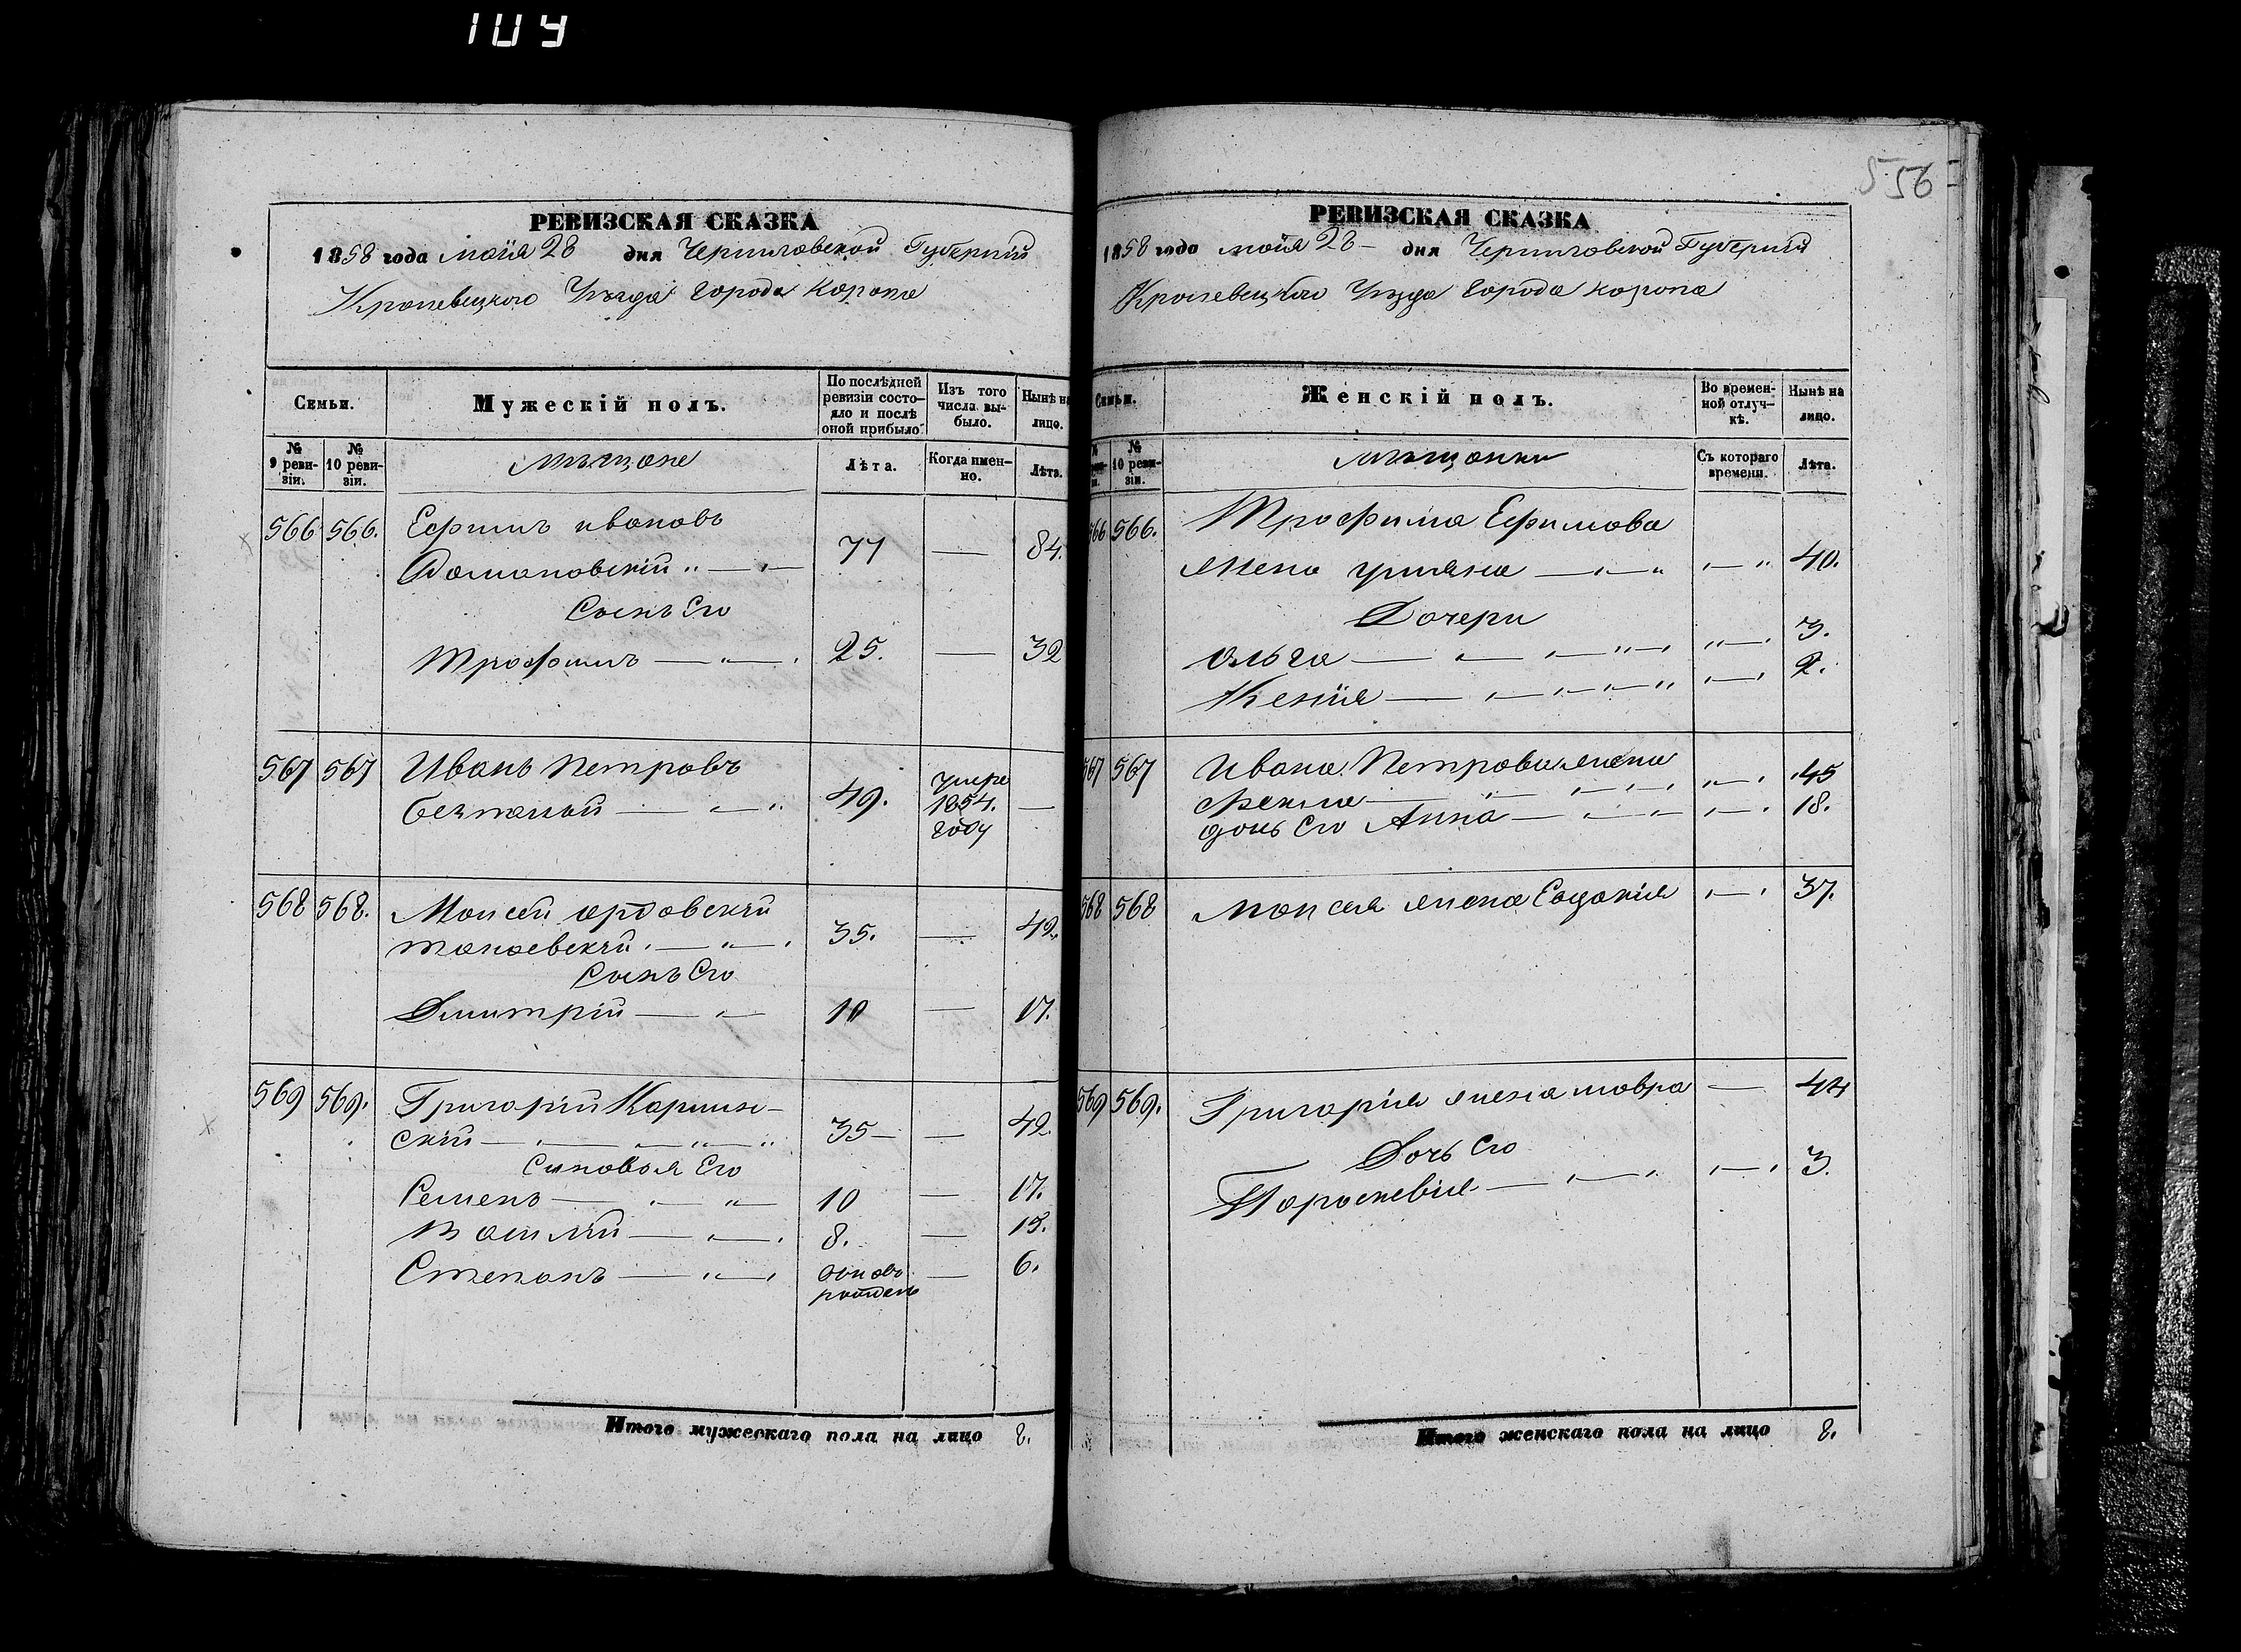 109
556
РЕВИЗСКАЯ СКАЗКА
1858 года маія 28 дня Черниговской Губерніи
Кролевецкого Уѣзда города Коропа
Семьи.
Мужескій полъ.
По послѣдней ревизіи состояло и послѣ оной прибыло
Изъ того числа выбыло.
Нынѣ на лицо.
№ 9 ревизіи.
№ 10 ревизіи.
мѣщане
Лѣта.
Когда именно.
Лѣта.
566 566. Ефимъ ивановъ
Домановскій 77 — 84.
Сынъ Его
Трофимъ 25. — 32
567 567 Иванъ Петровъ
49. умре 1854. году —
568 568. Моисей
35. — 42.
Сынъ Его
Дмитрій 10 — 17.
569 569. Григорій Карпин-
скій 35 — 42.
Синовья Его
Семенъ 10 — 17.
Василій 8. — 15.
Степанъ — 6.
Итого мужескаго пола на лицо 8.
РЕВИЗСКАЯ СКАЗКА
1858 года маія 28 дня Черниговской Губерніи
Кролевецкого Уѣзда города коропа
Семьи.
Женскій полъ.
Во временной отлучкѣ.
Нынѣ на лицо.
№ 10 ревизіи.
мѣщанки
Съ котораго времени.
Лѣта.
566 566. Трофима Ефимова
жена 40.
Дочери
Ольга 3.
Ксенія 2.
567 567 Ивана Петрова жена
Фекла 45
дочь Его Анна 18.
568 568 Моисея жена Евдокія 37.
569 569. Григорія жена мавра — 44
Дочь Его
Параскевія 3.
Итого женскаго пола на лицо 8.